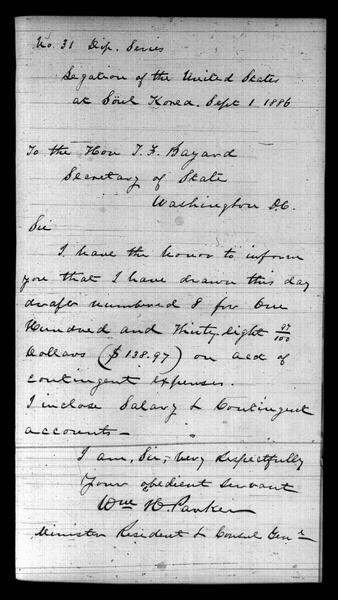 No. 31 Dip. Series
Legation of the United States
at Söul Korea. Sept 1 1886
To the Hon T. F. Bayard
Secretary of State
Washington D.C.
Sir
I have the honor to inform
you that I have drawn this day
draft numbered 8 for One
Hundred and thirty-eight 97/100
Dollars ($138.97) on acct of
contingent expenses.
I inclose Salary & Contingent
accounts—
I am, Sir, very respectfully
Your obedient servant
Wm H. Parker
Minister Resident & Consul Genr